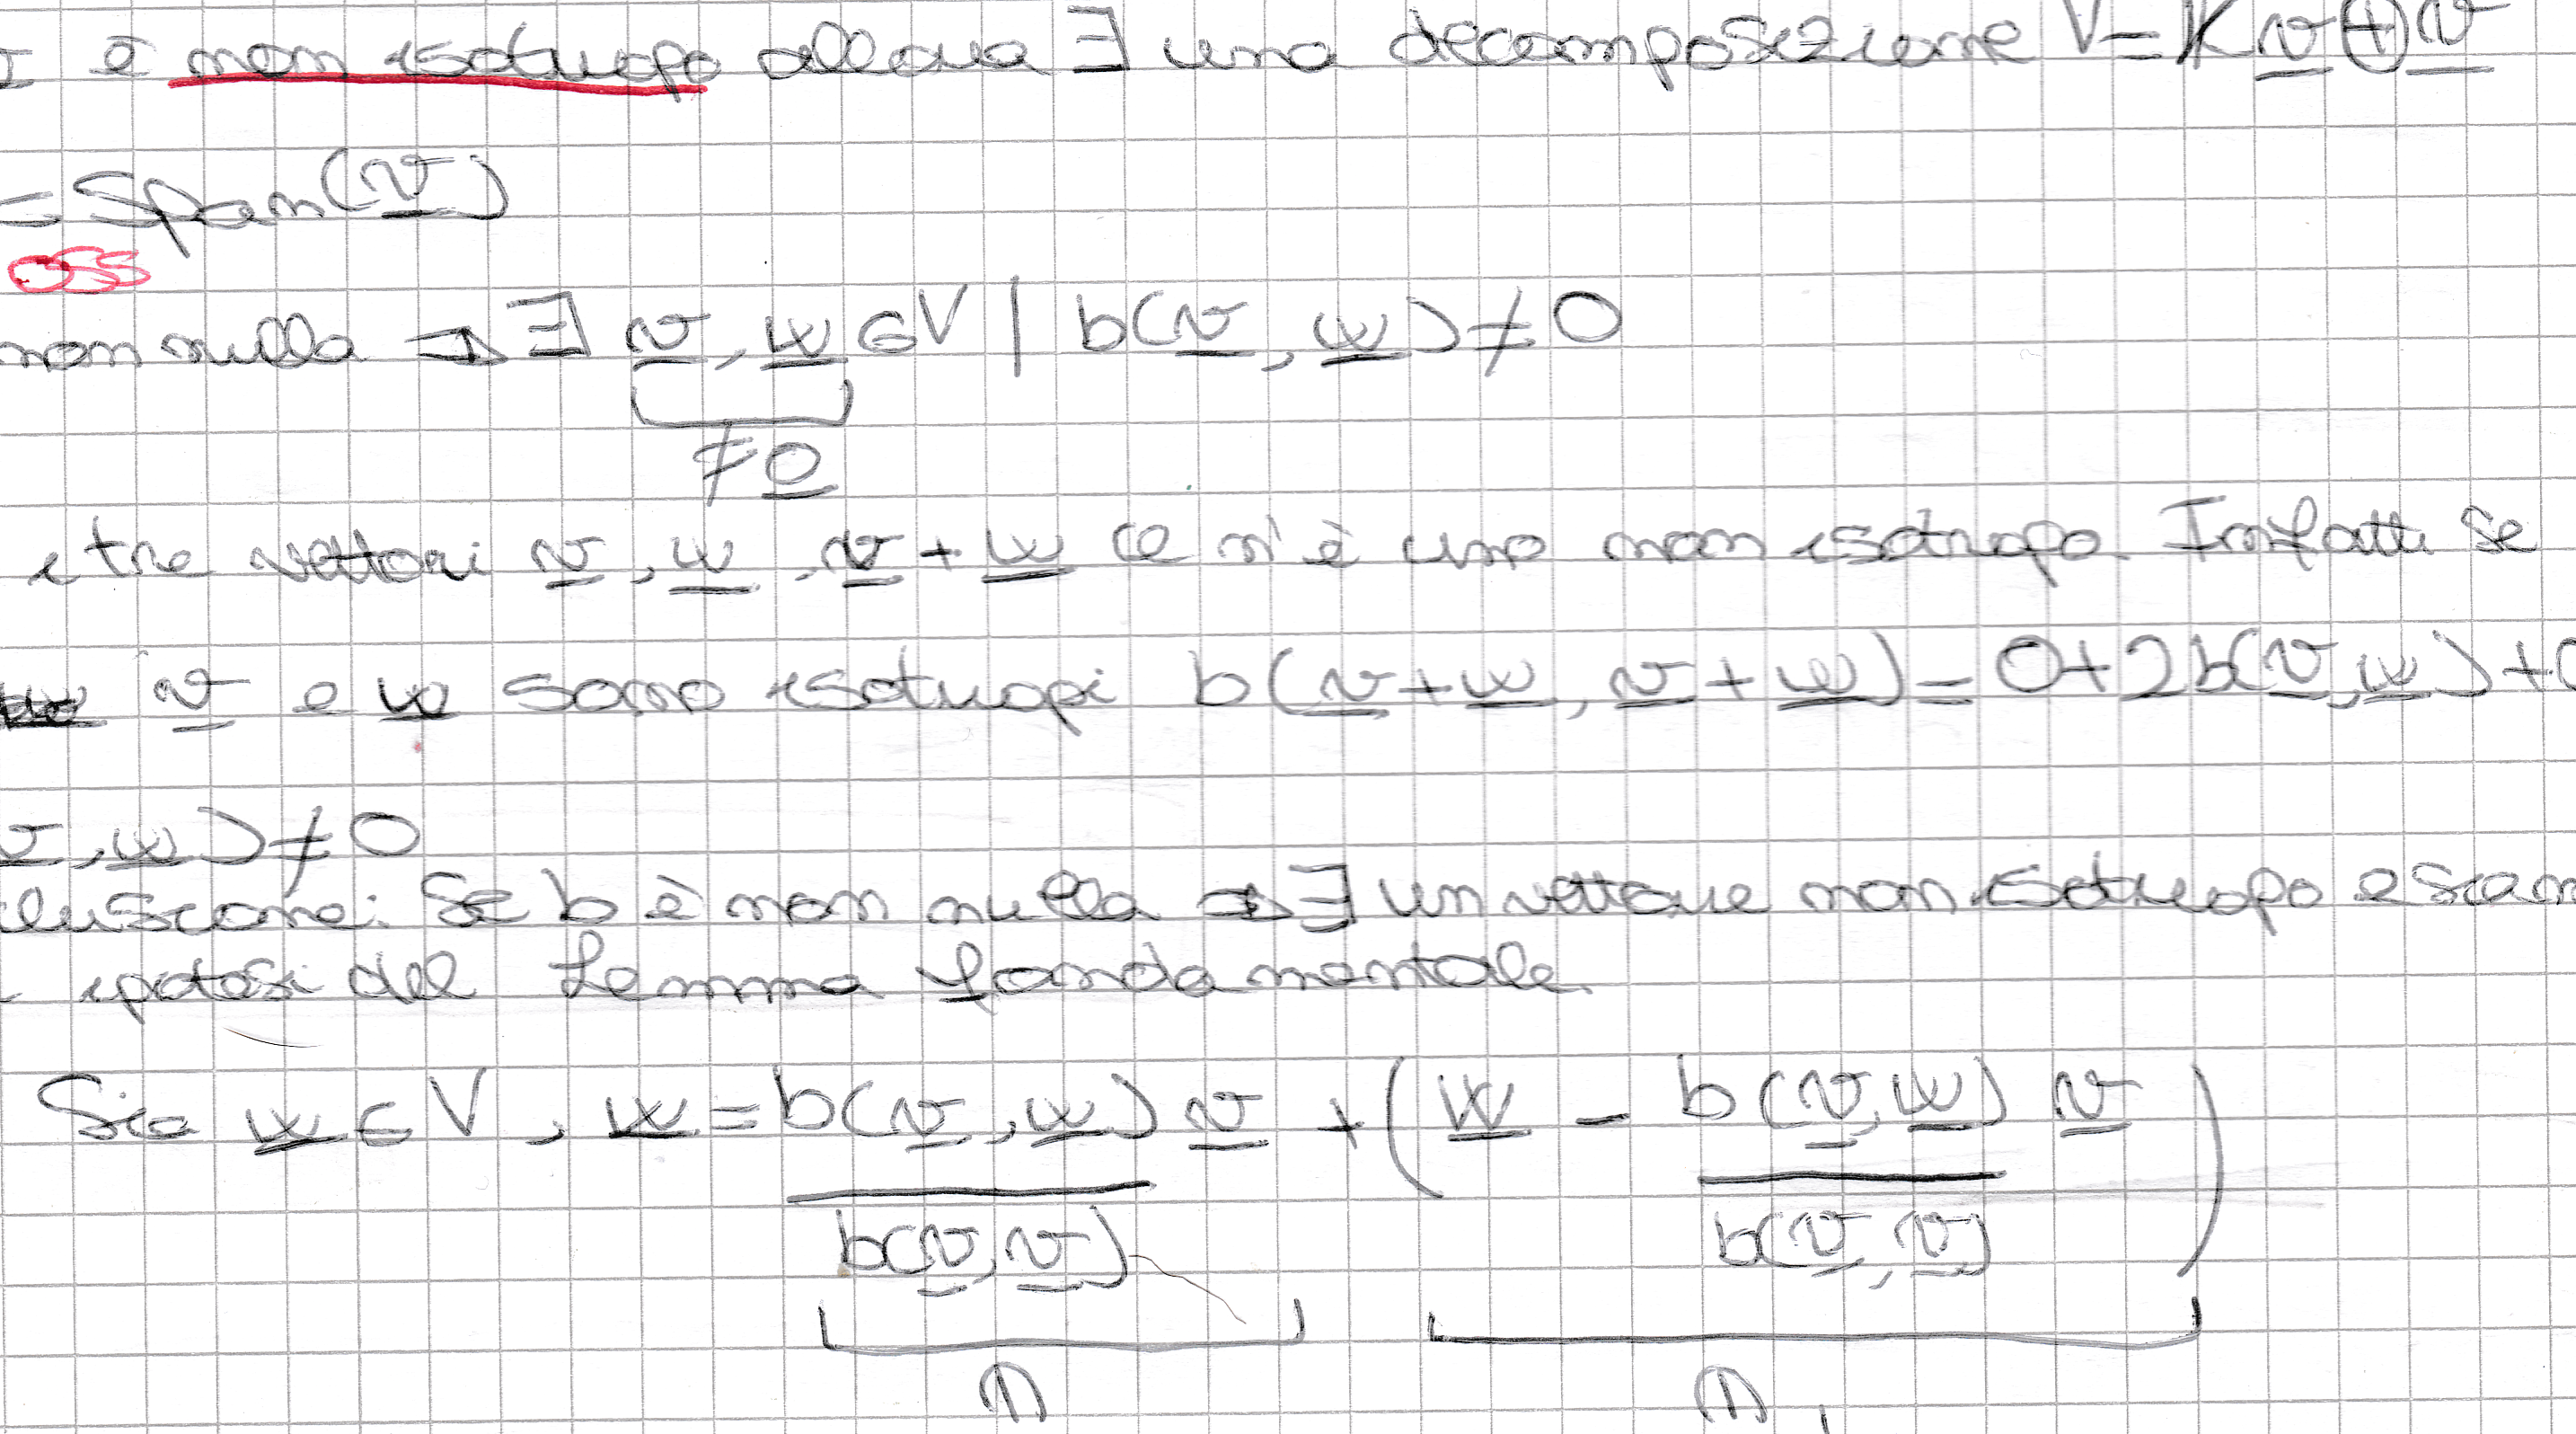 è non isotropo allora ∃ una decomposizione V = K v ⊕ v
= Span(v)
OSS
non nulla ⇒ ∃ v, w ∈ V | b(v, w) ≠ 0
≠ 0
i tre vettori v, w, v + w ce n'è uno non isotropo. Infatti se
v e w sono isotropi b(v + w, v + w) = 0 + 2b(v, w) + 0
v, w) ≠ 0
clusione: Se b è non nulla ⇒ ∃ un vettore non isotropo e siam
ipotesi del Lemma fondamentale.
Sia w ∈ V, w = b(v, w) v + (w - b(v, w) v)
b(v, v) b(v, v)
∩ ∩